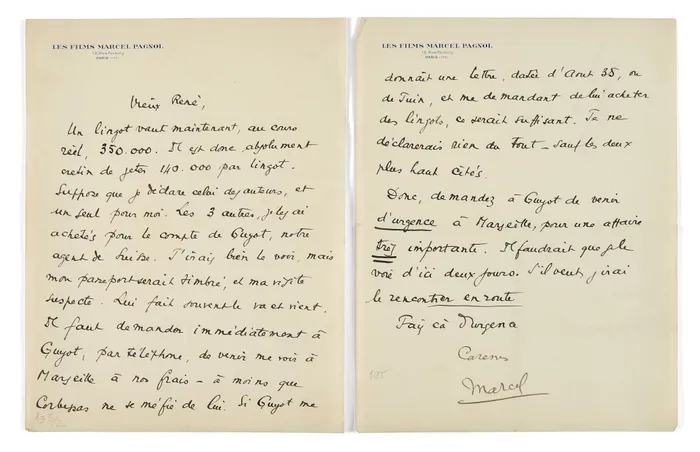 LES FILMS MARCEL PAGNOL
PARIS
Vieux René,
Un lingot vaut maintenant, au cours
réel, 350.000. Il est donc absolument
cretin de jeter 140.000 par lingot.
Suppose que je déclare celui des auteurs, et
un seul pour moi. Les 3 autres, je les ai
achetés pour le compte de Guyot, notre
agent de Suisse. J'irais bien le voir, mais
mon passeport serait timbré, et ma visite
suspecte. Lui fait souvent le va et vient.
Il faut demander immédiatement à
Guyot, par téléphone, de venir me voir à
Marseille à nos frais - à moins que
ne se méfie de lui. Si Guyot me
LES FILMS MARCEL PAGNOL
PARIS
donnait une lettre, datée d'Aout 35, ou
de Juin, et me demandant de lui acheter
des lingots, ce serait suffisant. Je ne
déclarerais rien du tout - sauf les deux
plus haut cités.
Donc, demandez à Guyot de venir
d'urgence à Marseille, pour une affaire
très importante. Il faudrait que je le
voie d'ici deux jours. S'il veut, j'irai
le rencontrer en route
Marcel